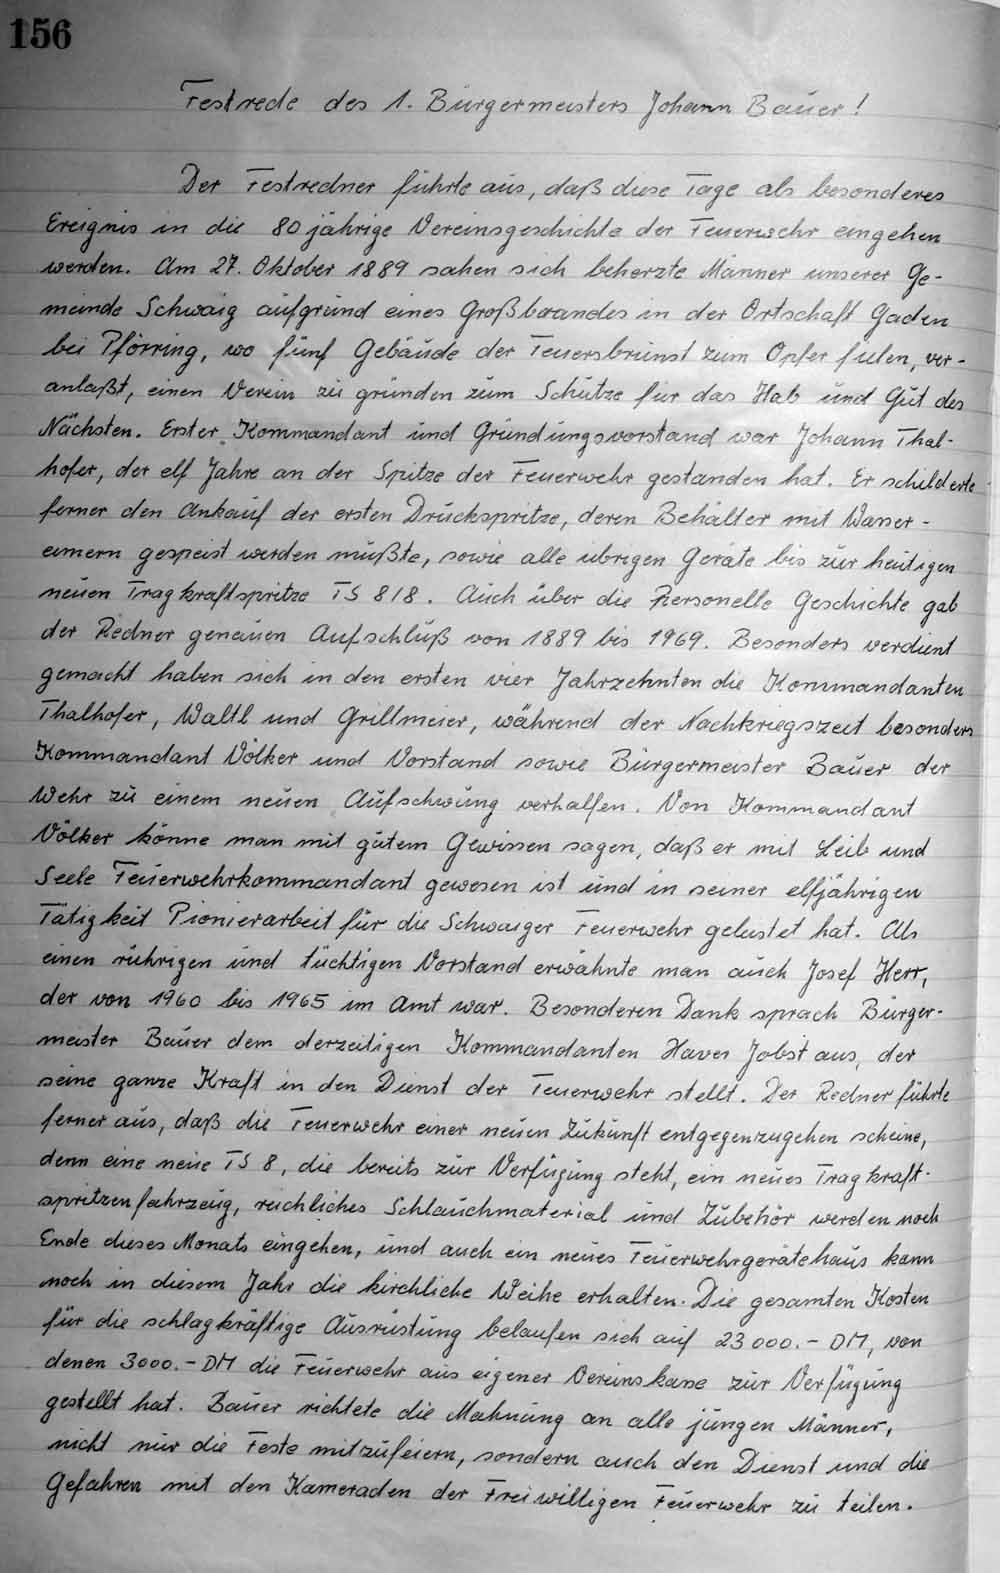 156
Festrede des 1. Bürgermeisters Johann Bauer!
Der Festredner führte aus, daß diese Tage als besonderes
Ereignis in die 80 jährige Vereinsgeschichte der Feuerwehr eingehen
werden. Am 27. Oktober 1889 sahen sich beherzte Männer unserer Ge-
meinde Schwaig aufgrund eines Großbrandes in der Ortschaft Gaden
bei Pförring, wo fünf Gebäude der Feuersbrunst zum Opfer fielen, ver-
anlaßt, einen Verein zu gründen zum Schutze für das Hab und Gut des
Nächsten. Erster Kommandant und Gründungsvorstand war Johann Thal-
hofer, der elf Jahre an der Spitze der Feuerwehr gestanden hat. Er schilderte
ferner den Ankauf der ersten Druckspritze, deren Behälter mit Wasser-
eimern gespeist werden mußte, sowie alle übrigen Geräte bis zur heutigen
neuen Tragkraftspritze TS 8/8. Auch über die Personelle Geschichte gab
der Redner genauen Aufschluß von 1889 bis 1969. Besonders verdient
gemacht haben sich in den ersten vier Jahrzehnten die Kommandanten
Thalhofer, Waltl und Grillmeier, während der Nachkriegszeit besonders
Kommandant Völker und Vorstand sowie Bürgermeister Bauer der
Wehr zu einem neuen Aufschwung verhalfen. Von Kommandant
Völker könne man mit gutem Gewissen sagen, daß er mit Leib und
Seele Feuerwehrkommandant gewesen ist und in seiner elfjährigen
Tätigkeit Pionierarbeit für die Schwaiger Feuerwehr geleistet hat. Als
einen rührigen und tüchtigen Vorstand erwähnte man auch Josef Herr,
der von 1960 bis 1965 im Amt war. Besonderen Dank sprach Bürger-
meister Bauer dem derzeitigen Kommandanten Xaver Jobst aus, der
seine ganze Kraft in den Dienst der Feuerwehr stellt. Der Redner führte
ferner aus, daß die Feuerwehr einer neuen Zukunft entgegenzugehen scheine,
denn eine neue TS 8, die bereits zur Verfügung steht, ein neues Tragkraft-
spritzenfahrzeug, reichliches Schlauchmaterial und Zubehör werden noch
Ende dieses Monats eingehen, und auch ein neues Feuerwehrgerätehaus kann
noch in diesem Jahr die kirchliche Weihe erhalten. Die gesamten Kosten
für die schlagkräftige Ausrüstung belaufen sich auf 23 000.- DM, von
denen 3000.- DM die Feuerwehr aus eigener Vereinskasse zur Verfügung
gestellt hat. Bauer richtete die Mahnung an alle jungen Männer,
nicht nur die Feste mitzufeiern, sondern auch den Dienst und die
Gefahren mit den Kameraden der Freiwilligen Feuerwehr zu teilen.